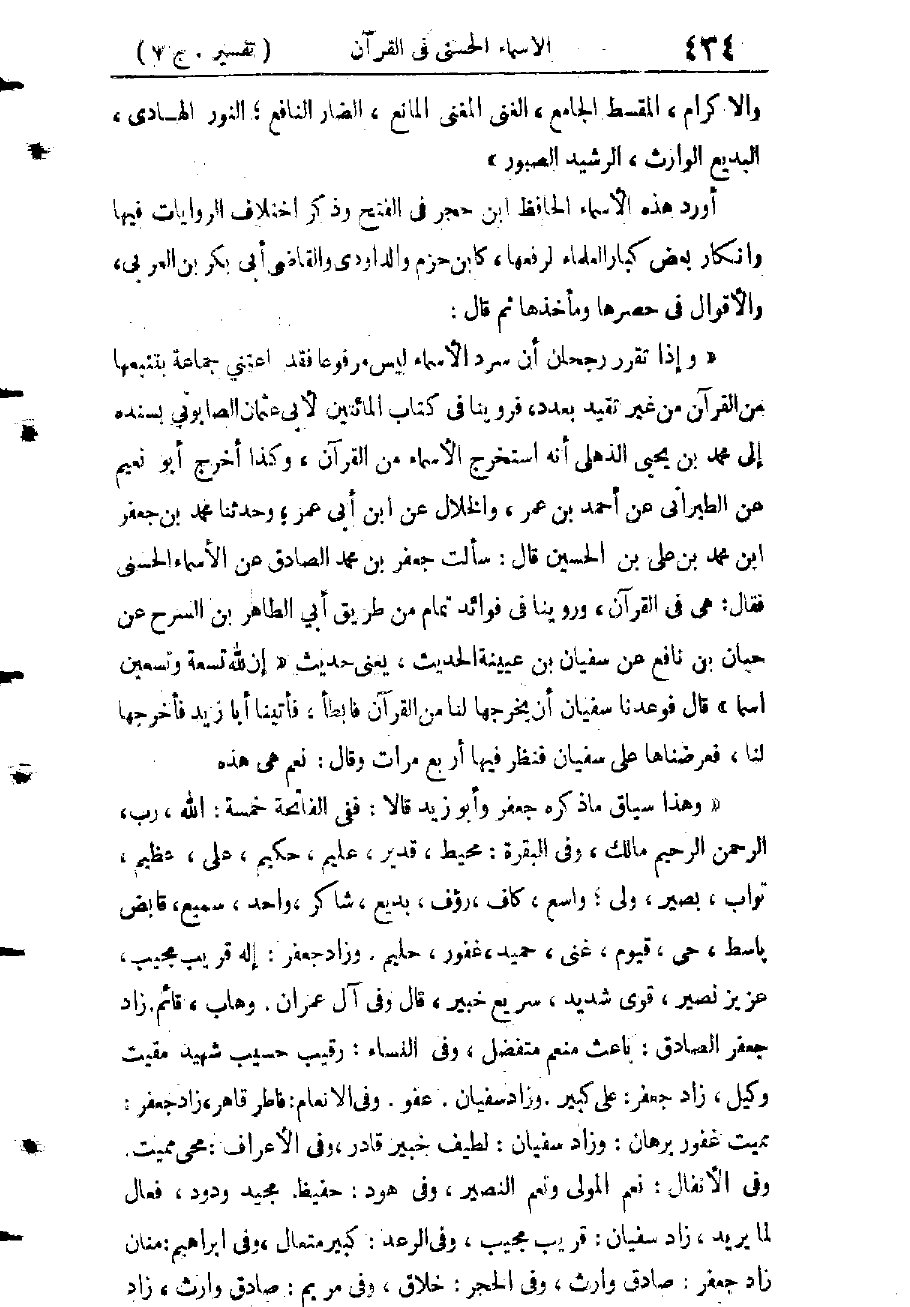 ٤٣٤ الاسماء الحسنى فى القرآن ( تفسير . ج ٧ )
والاكرام ، المقسط الجامع ، الغنى المغنى المانع ، الضار النافع ؛ النور الهـادى ،
البديع الوارث ، الرشيد الصبور »
أورد هذه الأسماء الحافظ ابن حجر فى الفتح وذكر اختلاف الروايات فيها
وانكار بعض كبار العلماء لرفعها ، كابن حزم والداودى والقاضى أبى بكر بن العربي،
والأقوال فى حصرها ومأخذها ثم قال :
« وإذا تقرر رجحان أن سرد الأسماء ليس مرفوعا فقد اعتني جماعة بتتبعها
من القرآن من غير تقيد بعدد، فروينا فى كتاب المائتين لأبى عثمان الصابوني بسنده
إلى محمد بن يحيى الذهلى أنه استخرج الأسماء من القرآن ، وكذا أخرج أبو نعيم
عن الطبرانى عن أحمد بن عمر ، والخلال عن ابن أبى عمر ؛ وحدثنا محمد بن جعفر
ابن محمد بن على بن الحسين قال : سألت جعفر بن محمد الصادق عن الأسماء الحسنى
فقال: هى فى القرآن ، وروينا فى فوائد تمام من طريق أبي الطاهر بن السرح عن
حبان بن نافع عن سفيان بن عيينة الحديث ، يعنى حديث « إن لله تسعة وتسعين
اسما » قال فوعدنا سفيان أن يخرجها لنا من القرآن فابطأ ، فأتينا أبا زيد فأخرجها
لنا ، فعرضناها على سفيان فنظر فيها أربع مرات وقال : نعم هى هذه
« وهذا سياق ماذكره جعفر وأبو زيد قالا : ففى الفاتحة خمسة : الله ، رب،
الرحمن الرحيم مالك ، وفى البقرة : محيط ، قدير ، عليم ، حكيم ، على ، عظيم ،
تواب ، بصير ، ولى ؛ واسع ، كاف ،رؤف ، بديع ، شاكر ،واحد ، سميع، قابض
باسط ، حى ، قيوم ، غنى ، حميد ،غفور ، حليم . وزاد جعفر : إله قريب مجيب،
عزيز نصير ، قوى شديد ، سريع خبير ، قال وفى آل عمران . وهاب ، قائم.زاد
جعفر الصادق : باعث منعم متفضل ، وفى النساء : رقيب حسيب شهيد مقيت
وكيل ، زاد جعفر: على كبير .وزاد سفيان . عفو . وفى الانعام: فاطر قاهر،زاد جعفر :
مميت غفور برهان : وزاد سفيان : لطيف خبير قادر ،وفى الأعراف :محى مميت.
وفى الأنفال : نعم المولى ونعم النصير ، وفى هود : حفيظ. مجيد ودود ، فعال
لما يريد ، زاد سفيان : قريب مجيب ، وفى الرعد : كبير متعال ،وفى ابراهيم :منان
زاد جعفر : صادق وارث ، وفى الحجر : خلاق ، وفى مريم : صادق وارث ، زاد